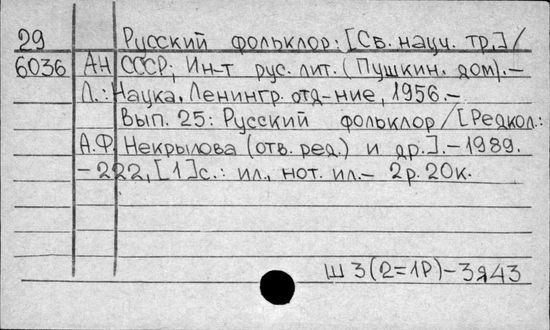 29 Русский фольклор: [Св. науч. тр.] /
6036 АН СССР; Ин-т рус. лит. (Пушкин. дом). –
Л.: Наука. Ленингр. отд-ние, 1956. –
Вып. 25: Русский фольклор / [Редкол.:
А.Ф. Некрылова (отв. ред.) и др.]. – 1989.
– 222, [1] с.: ил., нот. ил. – 2р. 20к.
Ш 3(2=1Р)-3я43